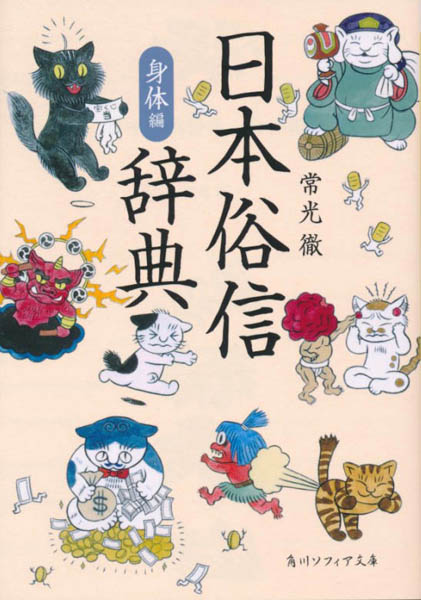 日本俗信
辞典
身体編
常光徹
宝くじ
当
$
角川ソフィア文庫